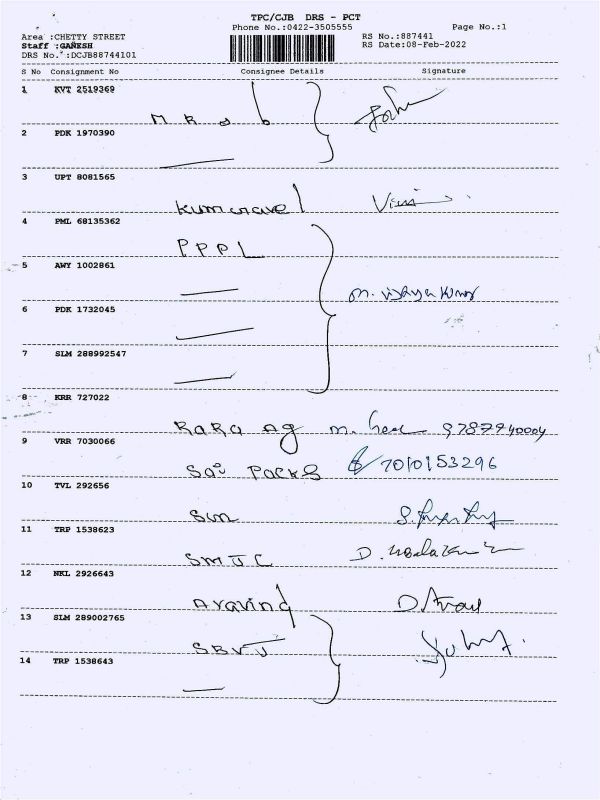 TPC/CJB DRS - PCT
Phone No.:0422-3505555 Page No.:1
Area :CHETTY STREET RS No.:887441
Staff :GANESH RS Date:08-Feb-2022
DRS No. :DCJB88744101
S No Consignment No Consignee Details Signature
1 KVT 2519369
2 PDK 1970390
3 UPT 8081565
Kumaravel
4 PML 68135362
PPPL
5 AWY 1002861
M. Vijaya Kumar
6 PDK 1732045
7 SLM 288992547
8 KRR 727022
RaRa Ag 9787740004
9 VRR 7030066
Sai Packs 7010153296
10 TVL 292656
Sun
11 TRP 1538623
SMJC
12 NKL 2926643
Aravind
13 SLM 289002765
SBVJ
14 TRP 1538643